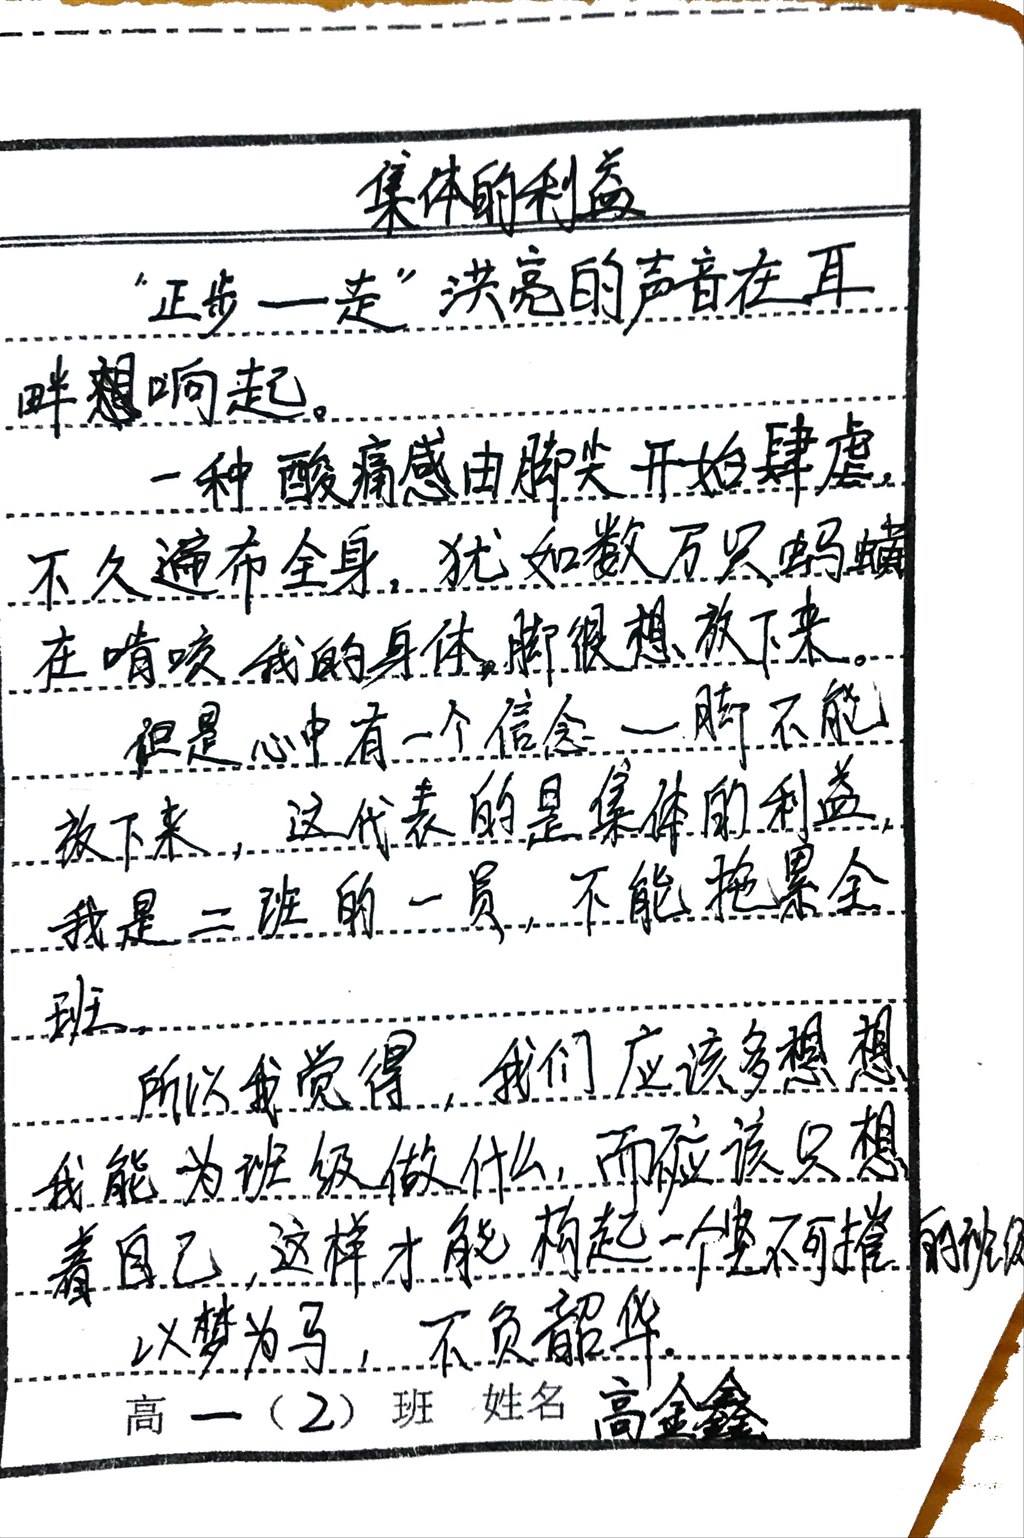 集体的利益
“正步一走”洪亮的声音在耳
畔想响起。
一种酸痛感由脚尖开始肆虐,
不久遍布全身,犹如数万只蚂蟥
在啃咬我的身体,脚很想放下来。
但是心中有一个信念—脚不能
放下来,这代表的是集体的利益,
我是二班的一员,不能拖累全
班.
所以我觉得,我们应该多想想
我能为班级做什么,而应该只想
着自己,这样才能构起一个坚不可撑的班级
以梦为马,不负韶华.
高一(2)班 姓名 高金鑫